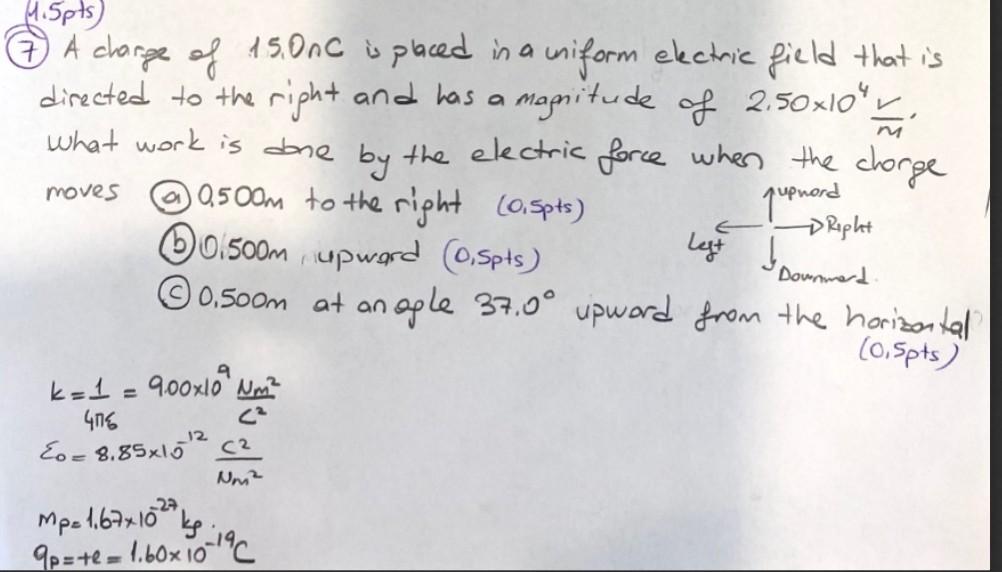 (1.5pts)
7 A charge of 15.0nC is placed in a uniform electric field that is
directed to the right and has a magnitude of 2.50x10⁴ V/m.
What work is done by the electric force when the charge
moves a 0,500m to the right (0,5pts)
upward
Left Right
b 0.500m, upward (0,5pts)
Downward.
c 0,500m at an agle 37.0° upward from the horizontal
(0,5pts)
k = 1/4πε = 9.00x10⁹ Nm²/C²
ε₀ = 8.85x10⁻¹² C²/Nm²
mp = 1.67x10⁻²⁷ kg.
qp = +e = 1.60x10⁻¹⁹C